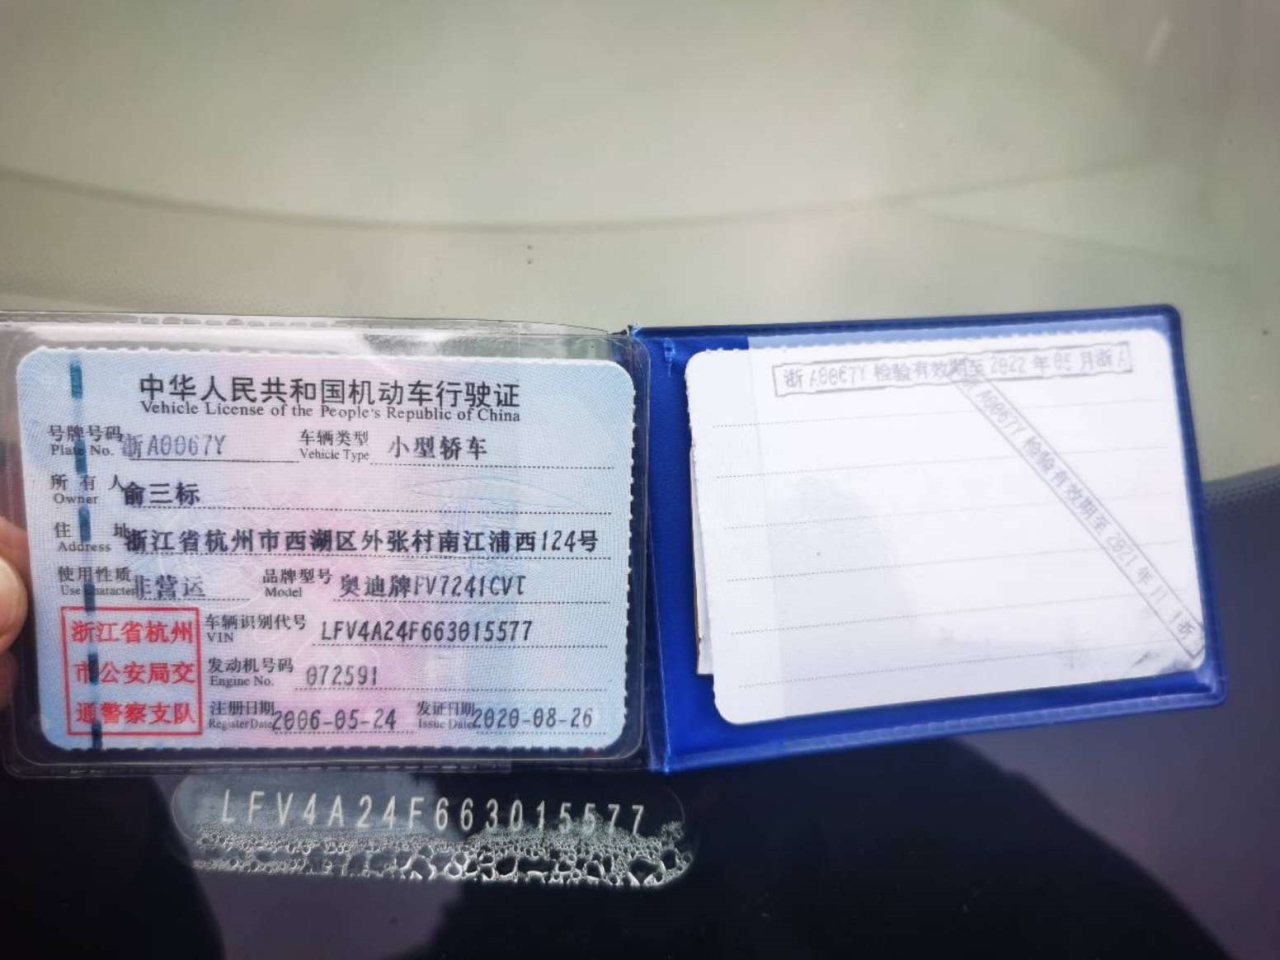 中华人民共和国机动车行驶证
Vehicle License of the People's Republic of China
号牌号码 浙A0067Y 车辆类型 小型轿车
Plate No. Vehicle Type
所有人 俞三标
Owner
住址 浙江省杭州市西湖区外张村南江浦西124号
Address
使用性质 非营运 品牌型号 奥迪牌FV7241CVT
Use Character Model
浙江省杭州市公安局交通警察支队
车辆识别代号 LFV4A24F663015577
VIN
发动机号码 072591
Engine No.
注册日期 2006-05-24 发证日期 2020-08-26
Register Date Issue Date
浙A0067Y 检验有效期至 2022 年 05 月 浙A
A0067Y 检验有效期至 2021 年
LFV4A24F663015577